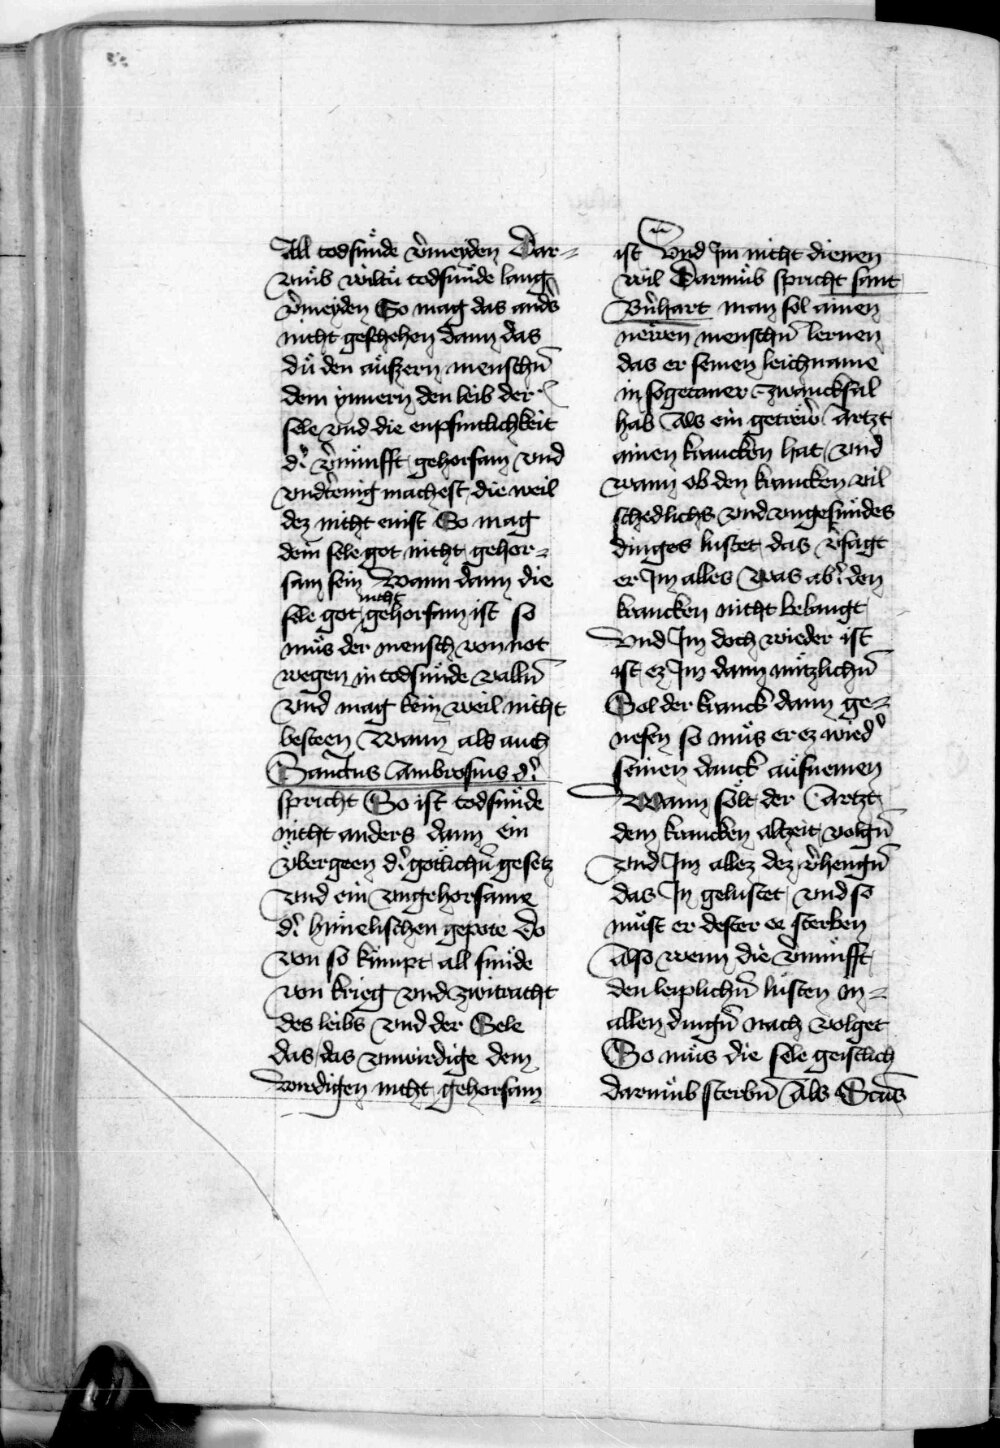 All todsuͤnde v̄meyden Dar-
vmͤb wiltuͤ todsuͤnde lang
v̄meyden So mag das and̄s
nicht geschehen dann das
duͤ den auͤßern menschn̄
dem ynnern den leib der
sele vnd die enpfintlichkeit
d̄ v̄nuͤnfft gehorsam vnd
vndtenig machest die weil
dez nicht enist So mag
dein sele got nicht gehor-
sam sein Wann dann die
sele got nicht gehorsam ist so
muͤs der mensch von not
wegen in todsuͤnde valln̄
vnd mag kein weil nicht
besteen Wann als auch
Sanctus Ambrosius d̄
spricht So ist todsuͤnde
nicht anders dann ein
vͤbergeen d̄ gotlichn̄ gesetz
vnd ein vngehorsame
d̄ himelischen gepote Do
von so kuͤmpt all suͤnde
von krieg vnd zwitracht
des leibs vnd der Sele
das das vnwirdige dem
wirdigen nicht gehorsam
ist Vnd Im nicht dienen
wil Darumͤb spricht sant
Bn̄hart man sol ainen
newen menschn̄ lernen
das er seinen leichname
in sogetaner zwancksal
hab Als ein getrew̄ Artzt
ainen krancken hat vnd
wann ob den krancken vil
schedlichs vnd vngesuͤndes
dinges lustet das v̄sagt
er Im alles Was ab̄ den
krancken nicht belangt
Vnd Im doch wieder ist
ist ez Im dann nuͤtzlichn̄
Sol der kranck dann ge-
nesen so muͤs er ez wied̄
seinen danck auͤfnemen
Wann soͤlt der Artzt
dem krancken altzeit volgn̄
vnd Im allez dez v̄hengn̄
das In gelustet vnd so
muͤst er dester ee sterben
Also wenn die v̄nuͤnfft
den leiplichn̄ luͤsten in-
allen dingn̄ nach volget
So muͤs die sele geistlich
darumͤb sterbn̄ Als Sctūs